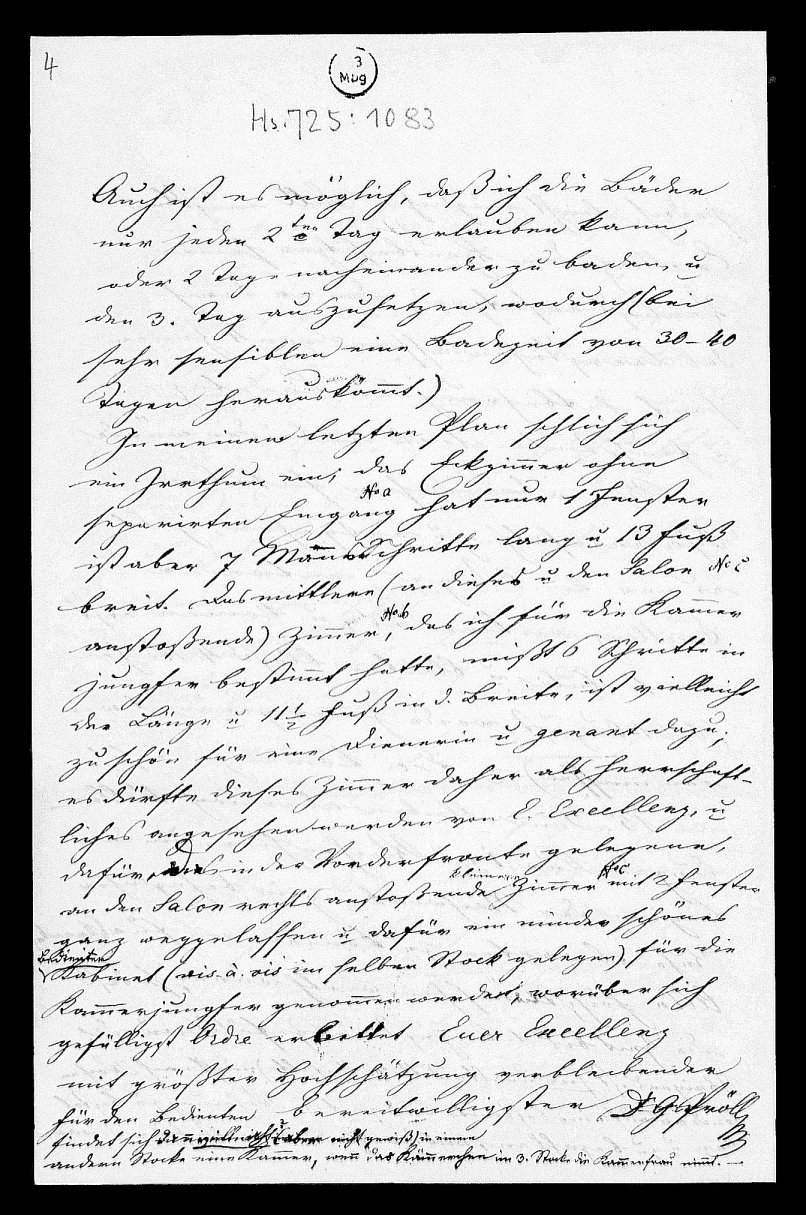 4
3
Mug
Hs. 725: 1083
Auch ist es möglich, daß ich die Bäder
nur jeden 2ten Tag erlauben kann,
oder 2 Tage nacheinander zu baden, u
den 3. Tag auszusetzen, wodurch (bei
sehr sensiblen eine Badezeit von 30-40
Tagen herauskom̄t.)
In meinem letzten Plan schlich sich
ein Irrthum ein; das Eckzim̄er ohne
separirten Eingang No a hat nur 1 Fenster
ist aber 7 Manns Schritte lang u 13 Fuß
breit. Das mittlere (an dieses u den Salon No c
anstoßende) Zim̄er, No b das ich für die Kam̄er
jungfer bestim̄t hatte, mißt 6 Schritte in
der Länge u 11 1/2 Fuß in d. Breite, ist vielleicht
zu schön für eine Dienerin u genant dazu;
es dürfte dieses Zim̄er daher als herrschaft-
liches angesehen werden von E. Excellenz, u
dafür das in der Vorderfronte gelegene,
an den Salon rechts anstoßende kleinere Zim̄er No C mit 2 Fenster
ganz weggelassen u dafür ein minder schönes
Bedienten
Kabinet (vis-à-vis im selben Stock gelegen) für die
Kam̄erjungfer genom̄en werden, worüber sich
gefälligst Ordre erbittet Euer Excellenz
mit größter Hochschätzung verbleibender
bereitwilligster D G Pröll
für den Bedienten
findet sich dann vielleicht (aber nicht gewiß) in einem
andern Stocke eine Kam̄er, wenn das Käm̄erchen im 3. Stocke die Kam̄erfrau nim̄t. —